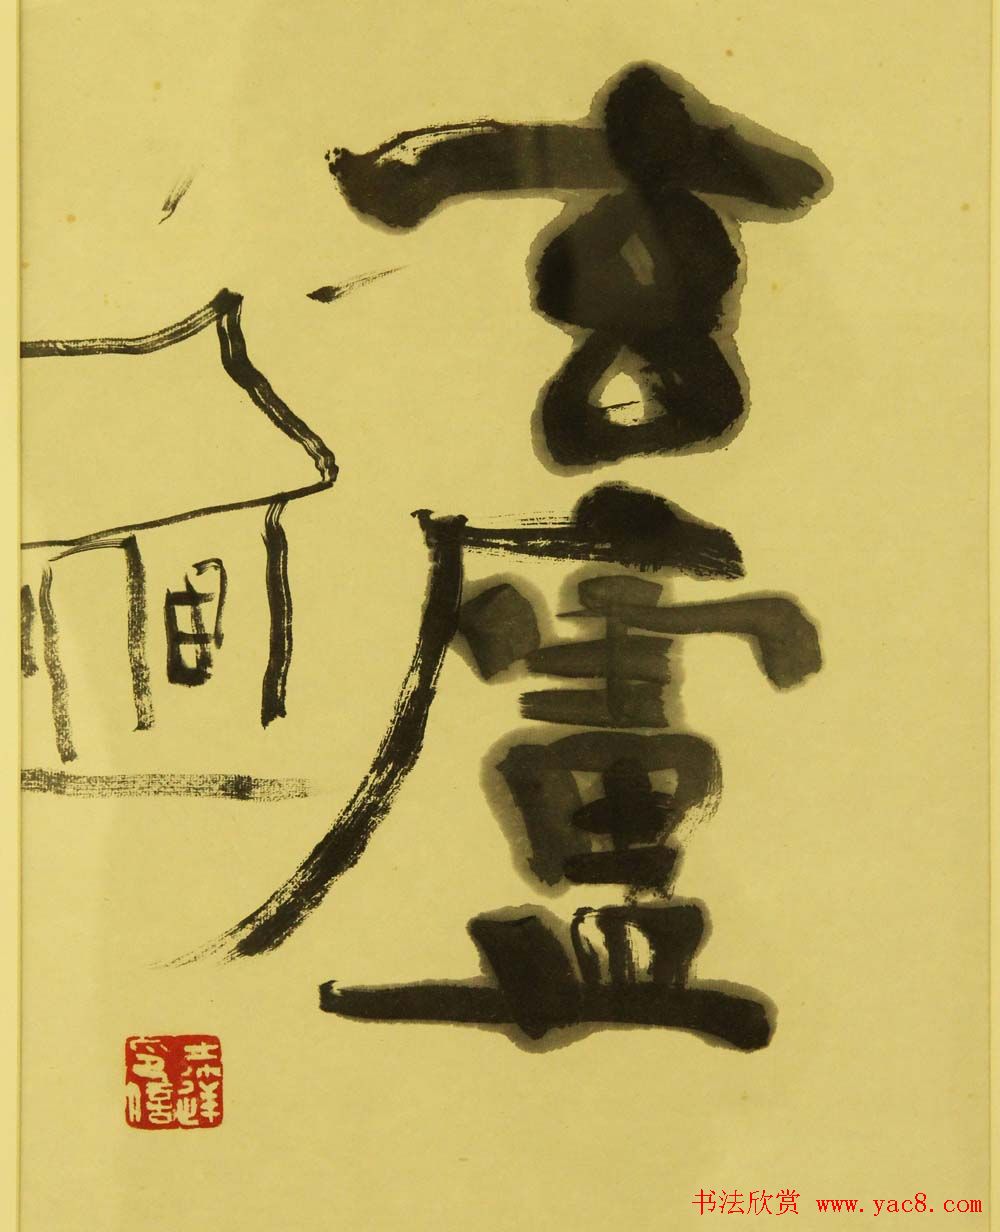 玄
廬
书法欣赏 www.yac8.com